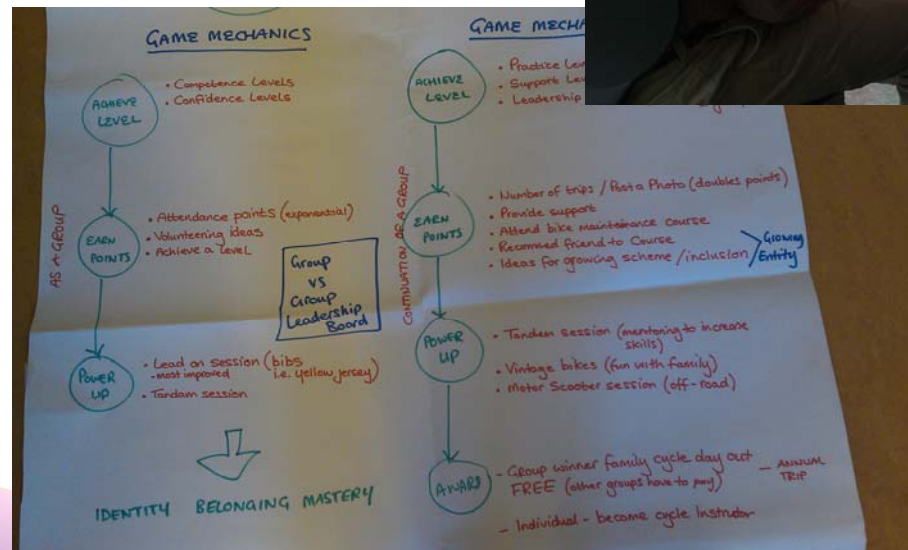 GAME MECHANICS
AS A GROUP
ACHIEVE
LEVEL
• Competence Levels
• Confidence Levels
EARN
POINTS
• Attendance points (exponential)
• Volunteering ideas
• Achieve a Level
Group
vs
Group
Leadership
Board
POWER
UP
• Lead on session (bibs
- most improved i.e. yellow jersey)
• Tandam session
IDENTITY BELONGING MASTERY
GAME
CONTINUATION OF A GROUP
ACHIEVE
LEVEL
• Practice
• Support
• Leadership
EARN
POINTS
• Number of trips / Post a Photo (doubles points)
• Provide support
• Attend bike maintenance course
• Recommed friend to Course
• Ideas for growing scheme / inclusion
Growing
Entity
POWER
UP
• Tandem session (mentoring to increase
skills)
• Vintage bikes (fun with family)
• Motor Scoober session (off-road)
AWARD
- Group winner family cycle day out
FREE (other groups have to pay)
- ANNUAL
TRIP
- Individual - become cycle Instructor